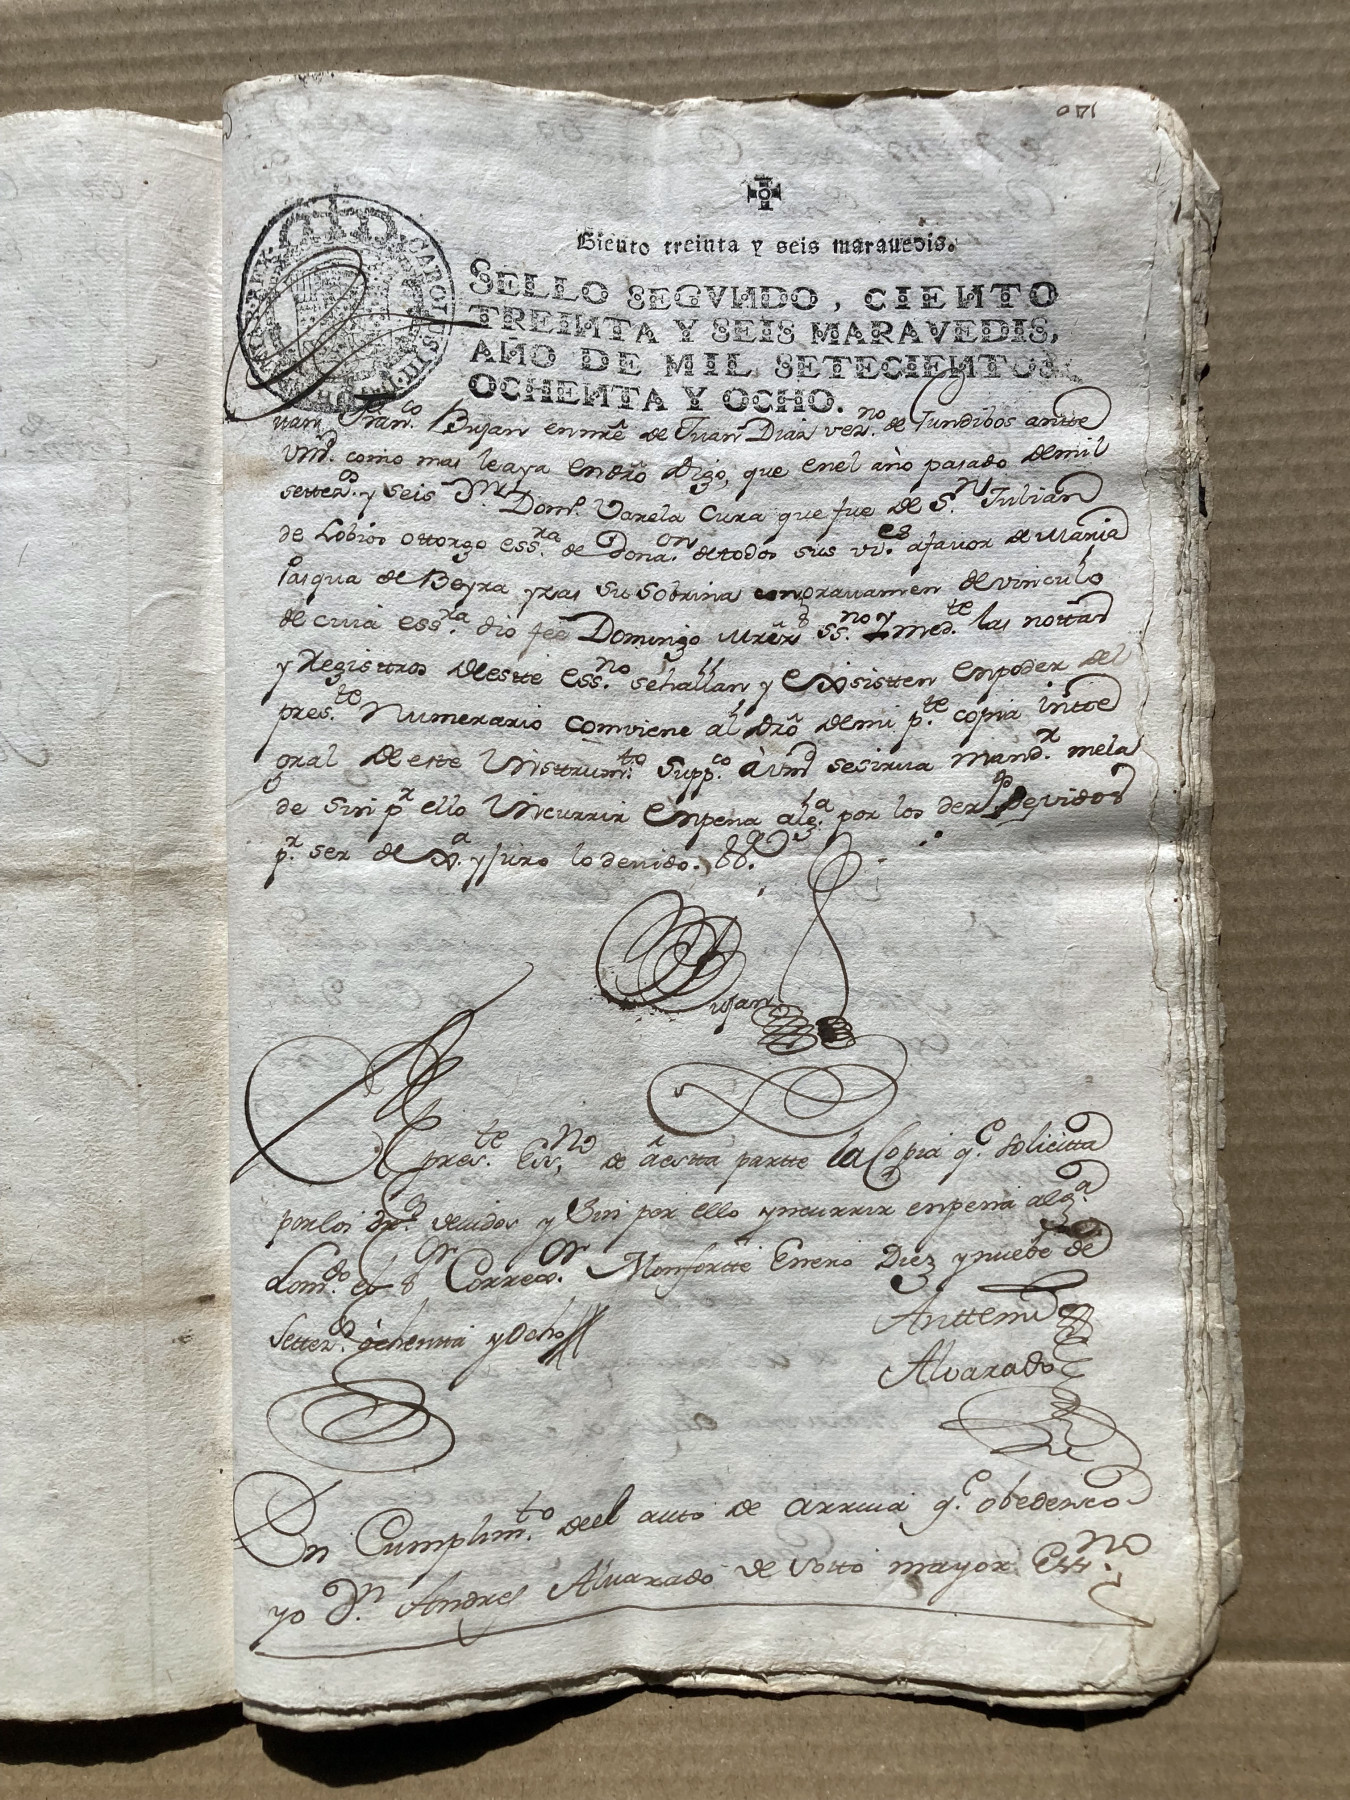 Ciento treinta y seis maravedis.
SELLO SEGVNDO, CIENTO
TREINTA Y SEIS MARAVEDIS,
AÑO DE MIL SETECIENTOS
OCHENTA Y OCHO.
CAROLUS III D
Juan Franco. Bujan en nre. de Juan Diaz vezno. de Tundibos antte
Vmd. como mas leaya en dro digo, que en el año pasado de mil
settezos. y seis Dn. Domo. Varela Cura que fue de Sn. Julian
de Lobios ottorgo essra. de Donaon. de todos sus vies. afavor de Maria
Pasqua de Beyra yrias su sobrina con gravamen de vinculo
de cuia essra. dio fee Domingo ssno. y med.te las nottas
y Registtros de estte essno. se hallan y existten en poder del
preste. Numerario comviene al dro de mi pte. copia intte
gral de este Instrumto. suppco. à vmd se sirva mandr. mela
de sin pr. ello incurrir en pena alga. por los deros. devidos
pr. ser de xa. y juro lo devido. &a.
Bujan
El preste. Esno. de â estta partte la Copia qe. solicitta
por los dros. devidos y sin por ello yncurrir en pena alga.
Lo mdo. el sor Correor. Monfortte Enero Diez y nuebe de
settezos. ôchentta y ocho
Anttemi
Alvarado
En Cumplimto. del auto de arriva qe. obedezco
yo Dn. Andres Alvarado de Sotto mayor Essno.